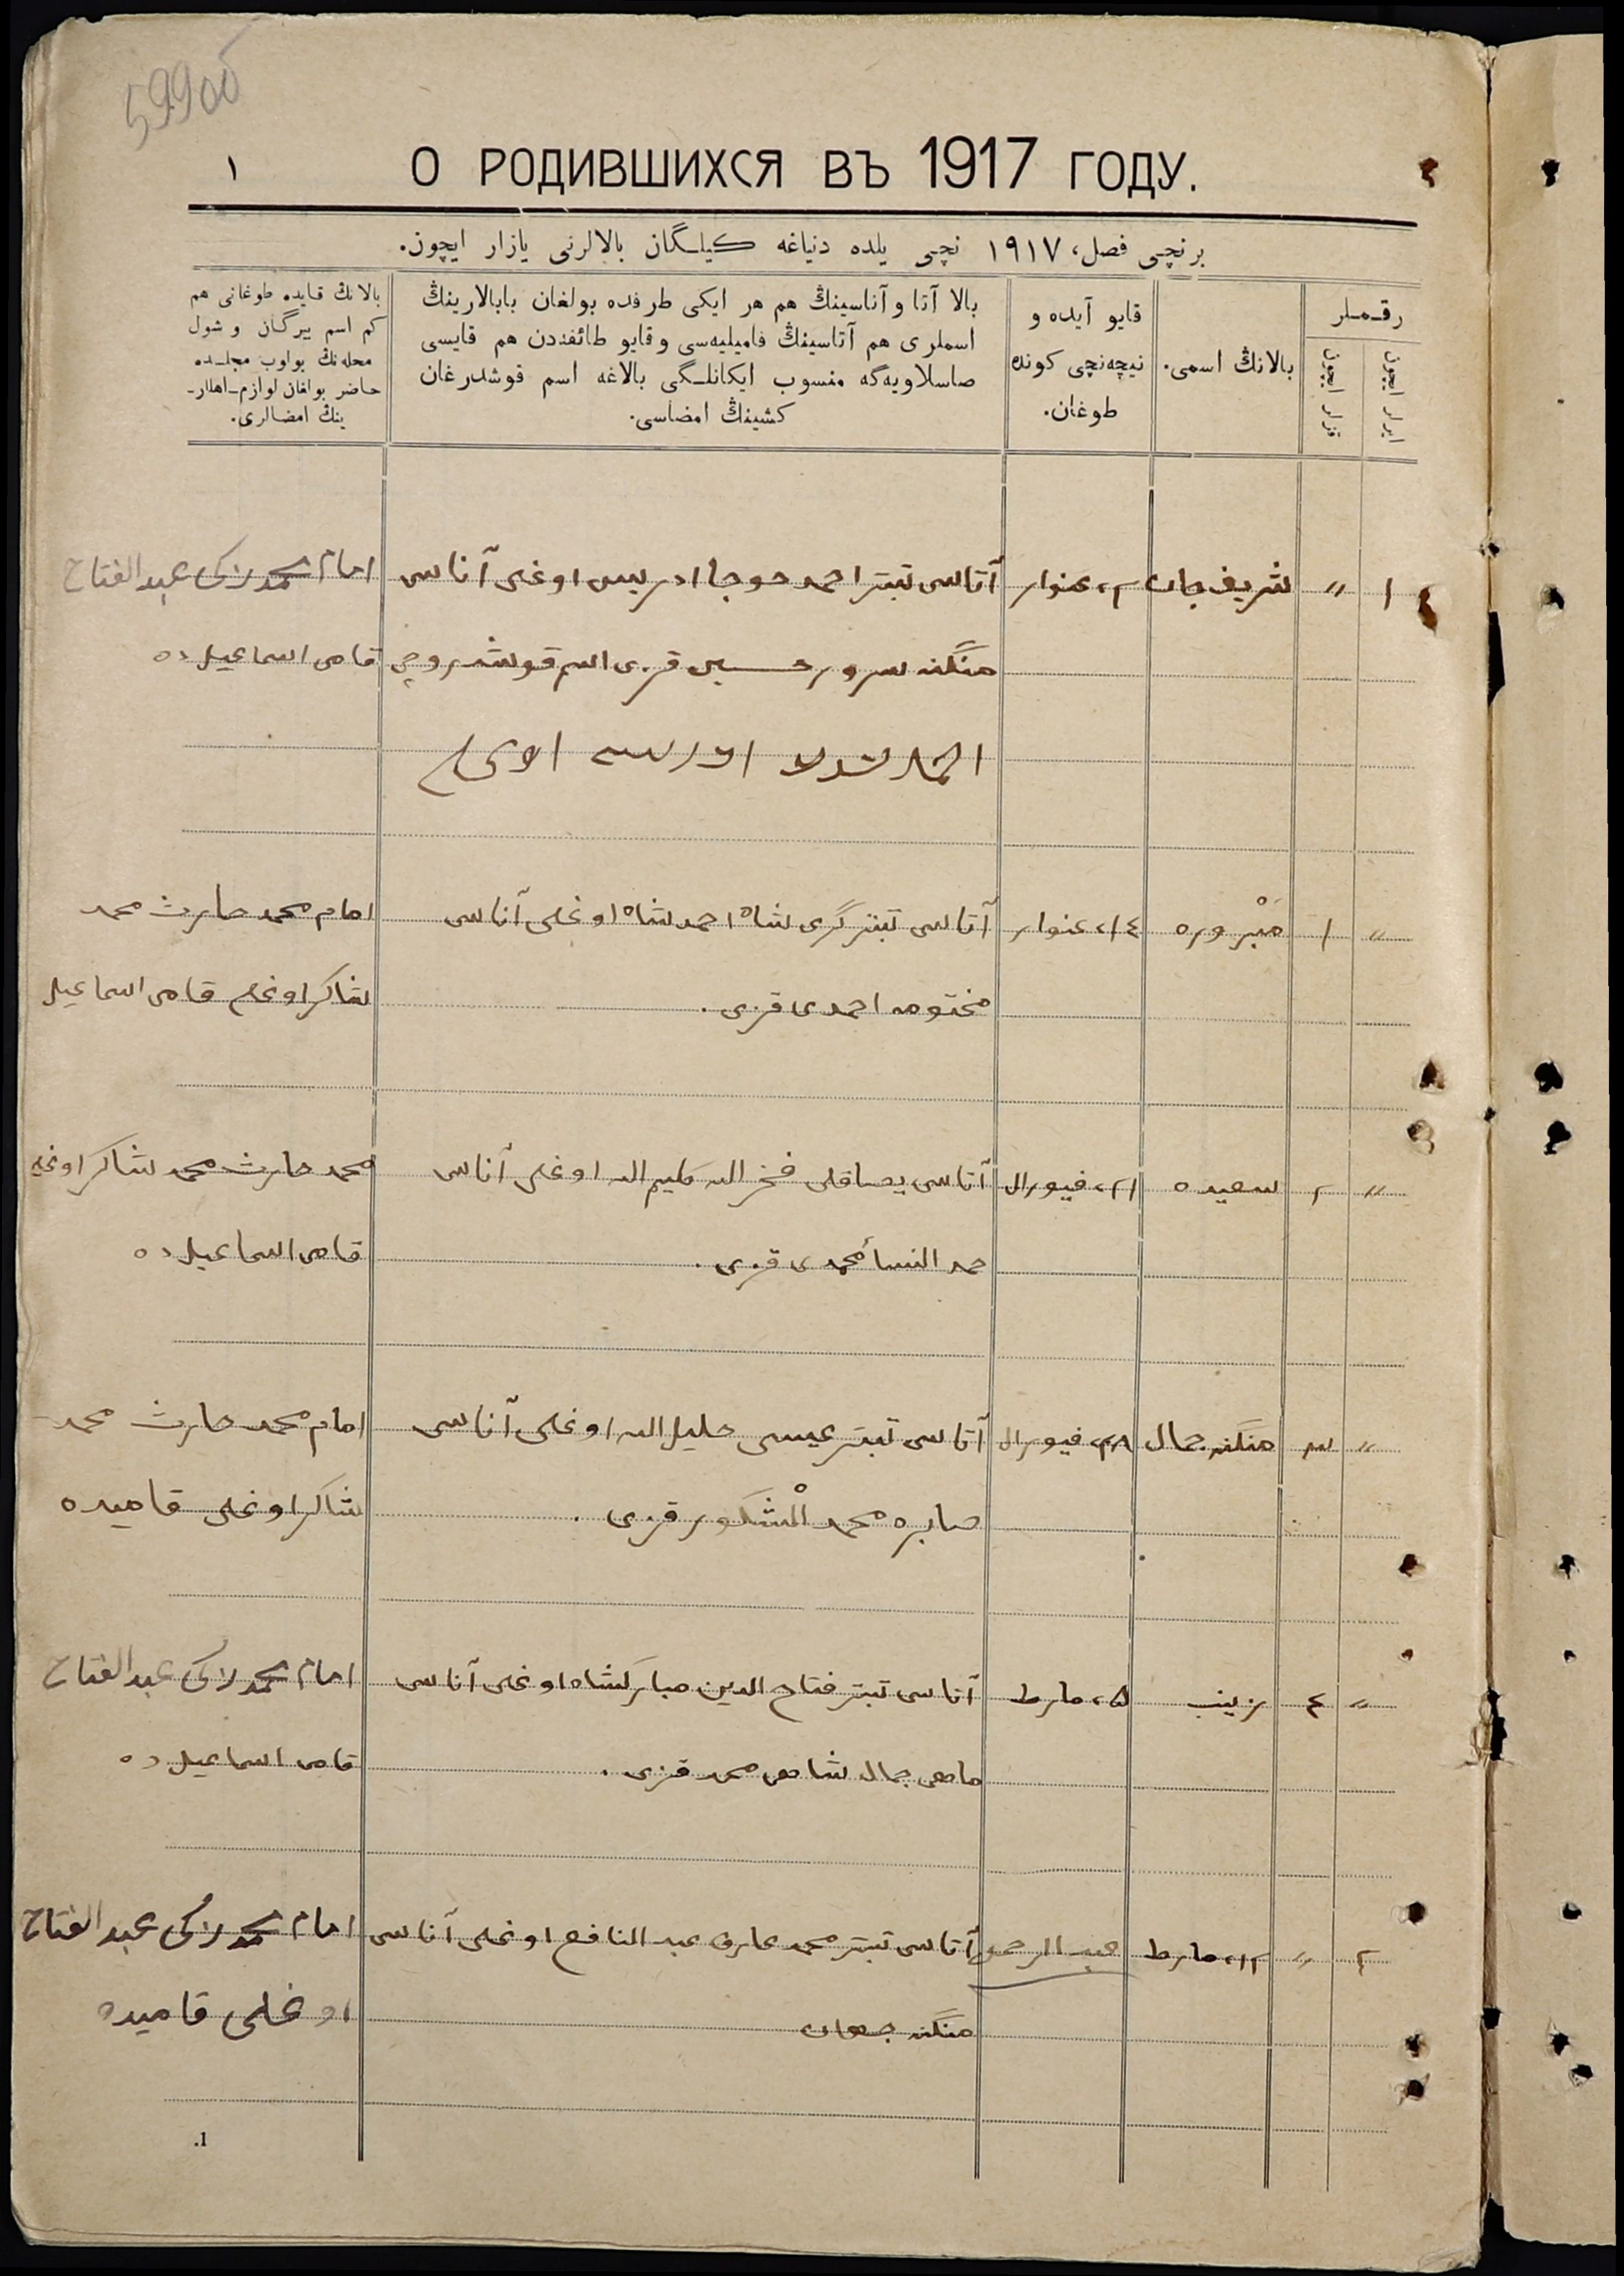 599об
О РОДИВШИХСЯ ВЪ 1917 ГОДУ.
١
برنچی فصل، ١٩١٧ نچی یلده دنیاغه کیلـگان بالالرنی یازار ایچون.
رقـملر
ایرلر ایچون
قزلر ایچون
بالانڭ اسمی.
قایو آیده و
نیچه‌نچی کونده
طوغان.
بالا آتا و آناسینڭ هم هر ایکی طرفده بولغان بابالارینڭ
اسملری هم آتاسینڭ فامیلیه‌سی و قایو طائفه‌دن هم قایسی
صاسلاویه‌گه منسوب ایکانلـگی بالاغه اسم قوشدرغان
کشینڭ امضاسی.
بالانڭ قایده طوغانی هم
کم اسم بیرگـان و شول
محله‌نڭ بولوب مجلـده
حاضر بولغان لوازم-اهللر-
ینڭ امضالری.
١ " شریف جان ٢، غنوار آتاسی تبتر احمد خوجا ادریس اوغلی آناسی امام محمد زکی عبدالفتاح
منگنه سرور حسین قزی اسم قوشدروچی قامی اسماعیلده
" ١ مَبْروره ١٤، غنوار آتاسی تبتر گری شاه احمدشاه اوغلی آناسی امام محمد حارث محمد
مختومه احمدی قزی. شاکر اوغلی قامی اسماعیل
" ٢ سعیده ٢١، فیورال آتاسی یصاقلی فخر الله کلیم الله اوغلی آناسی محمد حارث محمد شاکر اوغلی
حمد النساء محمدی قزی. قامی اسماعیلده
" ٣ منگنه جمال ٢٨، فیورال آتاسی تبتر عیسی خلیل الله اوغلی آناسی امام محمد حارث محمد
صابره محمد الْشکور قزی. شاکر اوغلی قامیده
" ٤ زینب ٥، مارط آتاسی تبتر فتاح الدین مبارکشاه اوغلی آناسی امام محمد زکی عبدالفتاح
ماهی جمال شاهی محمد قزی. قامی اسماعیلده
٢ " ١٢، مارط عبد الرحمن آتاسی تبتر محمد عارف عبد النافع اوغلی آناسی امام محمد زکی عبد الفتاح
منگنه جهان اوغلی قامیده
1.